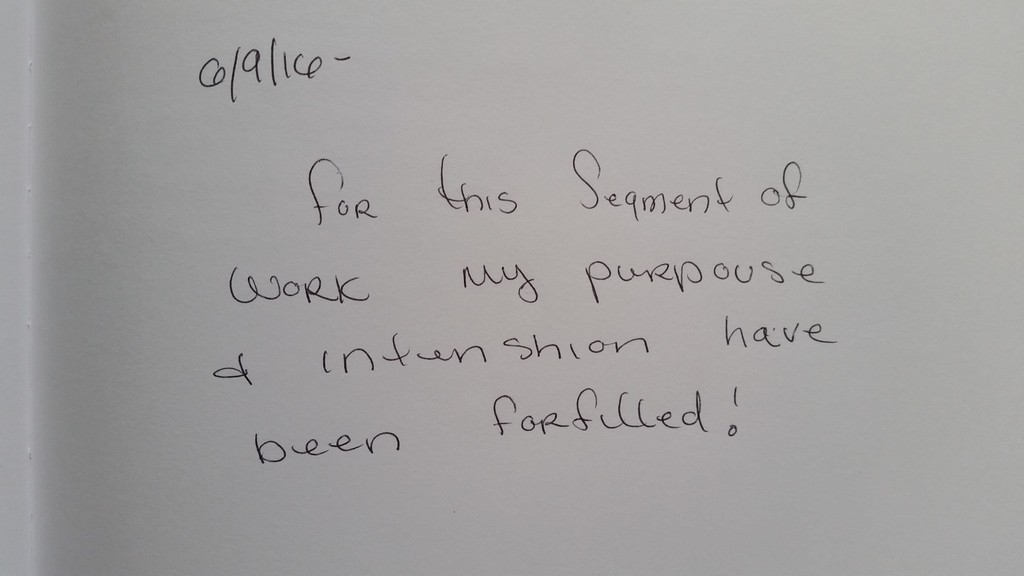 6/9/16-
For this Segment of
Work my purpouse
& intenshion have
been forfilled!